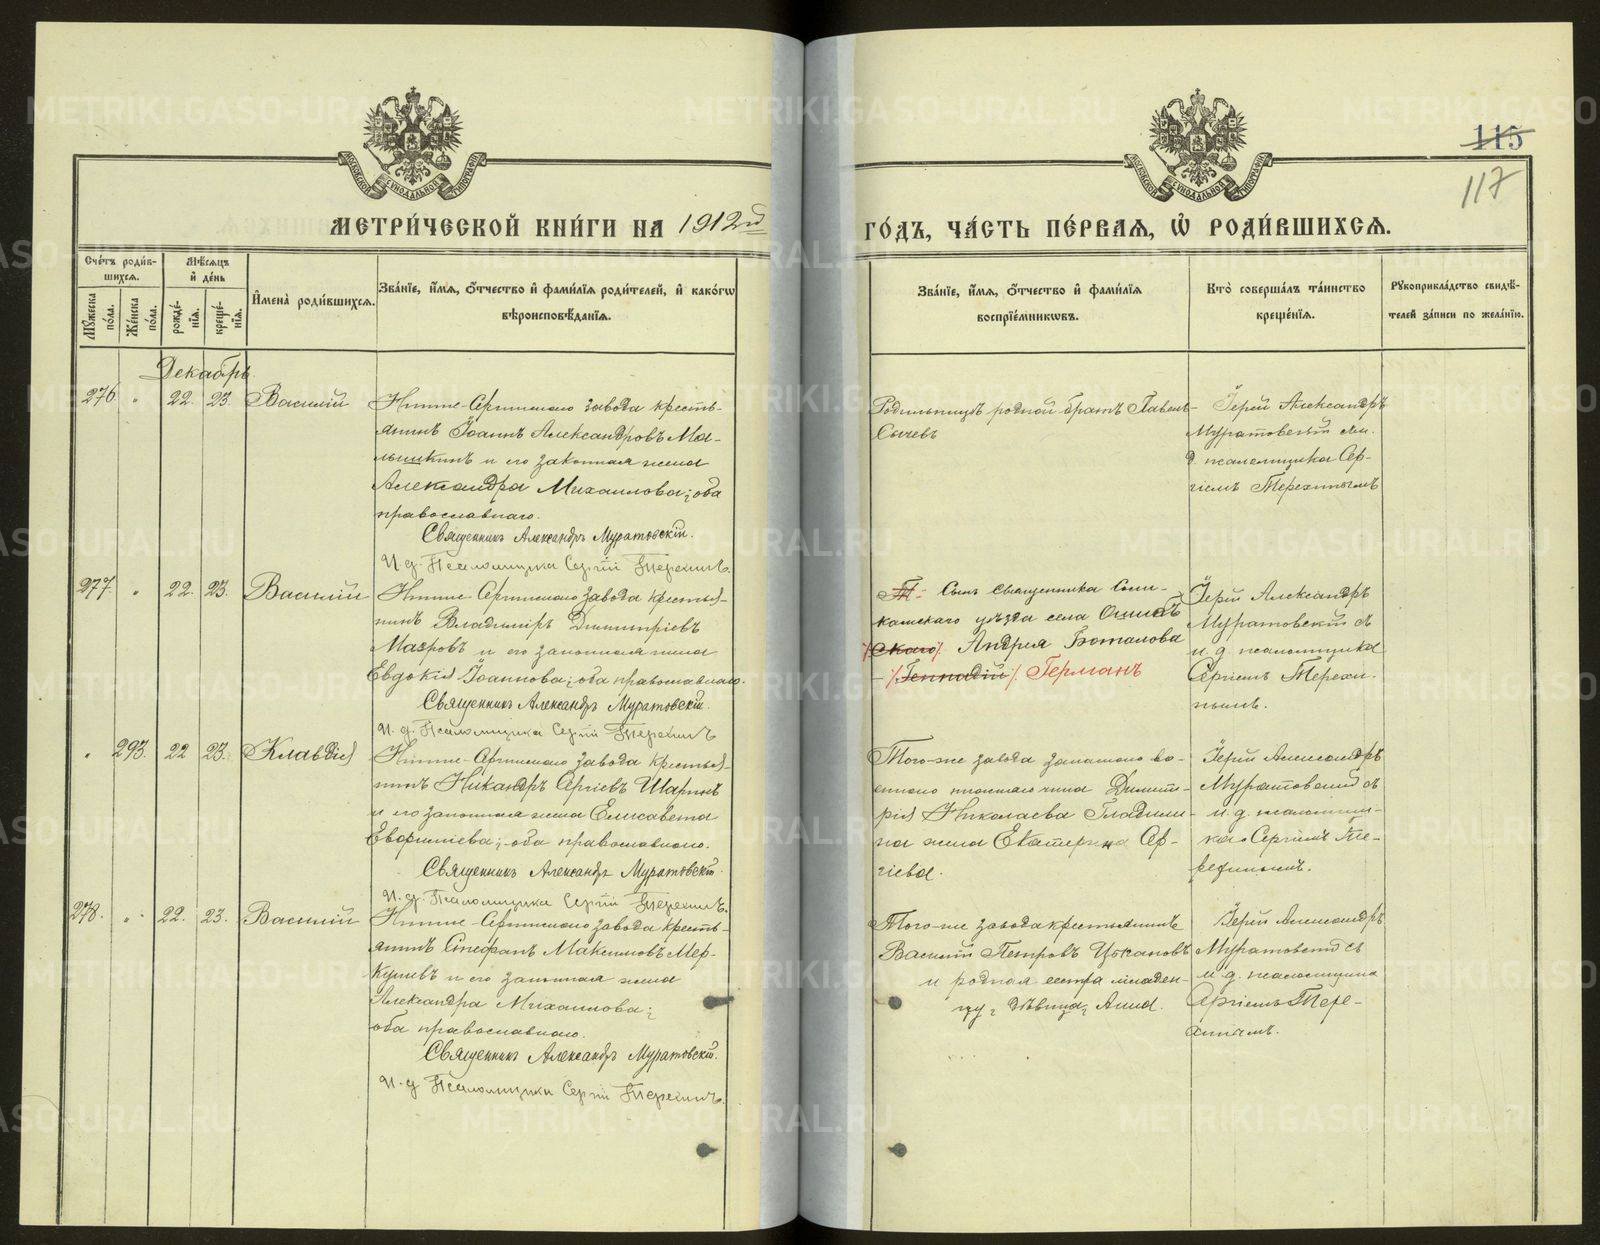 115
117
МЕТРИ́ЧЕСКОЙ КНИ́ГИ НА 1912й ГО́ДЪ, ЧА́СТЬ ПЕ́РВАЯ, Ѡ РОДИ́ВШИХСЯ.
Сче́тъ роди́в-
шихся.
Му́жеска по́ла.
Же́нска по́ла.
Мѣ́сяцъ и де́нь
рожде́-
нія.
креще́-
нія.
Имена̀ роди́вшихся.
Зва́ніе, и́мя, о́тчество и фами́лія роди́телей, и како́гѡ
вѣроисповѣ́данія.
Зва́ніе, и́мя, о́тчество и фами́лія
воспріе́мниковъ.
Кто̀ соверша́лъ та́инство
креще́нія.
Рукоприкла́дство свидѣ́-
телей за́писи по жела́нію.
Декабрь
276 " 22. 23. Василій
Нижне-Сергинскаго завода кресть-
янинъ Іоаннъ Александровъ Ма-
лышкинъ и его законная жена
Александра Михаилова; оба
православнаго.
Священникъ Александръ Муратовскій.
И. д. Псаломщика Сергій Терехинъ.
Родильницы родной братъ Павелъ
Сычевъ
Іерей Александръ
Муратовскій съ и.
д. псаломщика Сер-
гіемъ Терехинымъ
277. " 22. 23. Василій
Нижне Сергинскаго завода крестья-
нинъ Владиміръ Димитріевъ
Мазровъ и его законная жена
Евдокія Іоаннова; оба православнаго.
Священникъ Александръ Муратовскій.
И. д. Псаломщика Сергій Терехинъ
Сынъ священника Соли-
камскаго уѣзда села
Андрея Боталова
Геннадій Германъ
Іерей Александръ
Муратовскій съ
и. д. псаломщика
Сергіемъ Терехи-
нымъ.
" 293. 22 23. Клавдія
Нижне-Сергинскаго завода крестья-
нинъ Никандръ Сергіевъ Шаринъ
и его законная жена Елисавета
Евфиміева; оба православнаго.
Священникъ Александръ Муратовскій
И. д. Псаломщика Сергій Терехинъ.
Того-же завода запаснаго во-
еннаго нижняго чина Димит-
рія Николаева
на жена Екатерина Сер-
гіева.
Іерей Александръ
Муратовскій съ
и. д. псаломщи-
ка Сергіемъ Те-
рехинымъ.
278. " 22. 23. Василій
Нижне-Сергинскаго завода кресть-
янинъ Стефанъ Максимовъ Мер-
курьевъ и его законная жена
Александра Михаилова;
оба православнаго.
Священникъ Александръ Муратовскій.
И. д. Псаломщика Сергій Терехинъ.
Того-же завода крестьянинъ
Василій Петровъ Цыкановъ
и родная сестра младен-
цу, дѣвица, Анна.
Іерей Александръ
Муратовскій съ
и. д. псаломщика
Сергіемъ Тере-
хинымъ.